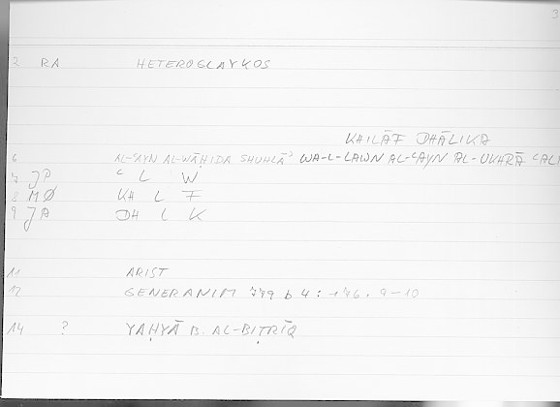 3
2 RA HETEROGLAYKOS
KHILĀF DHĀLIKA
6 AL-ʿAYN AL-WĀḤIDA SHUHLĀʾ WA-L-LAWN AL-ʿAYN AL-UKHRĀ ʿALĀ
7 JP ʿ L W
8 MØ KH L F
9 JA DH L K
11 ARIST
12 GENERANIM 779 b 4 : 9-10
14 ? YAḤYĀ B. AL-BIṬRĪQ